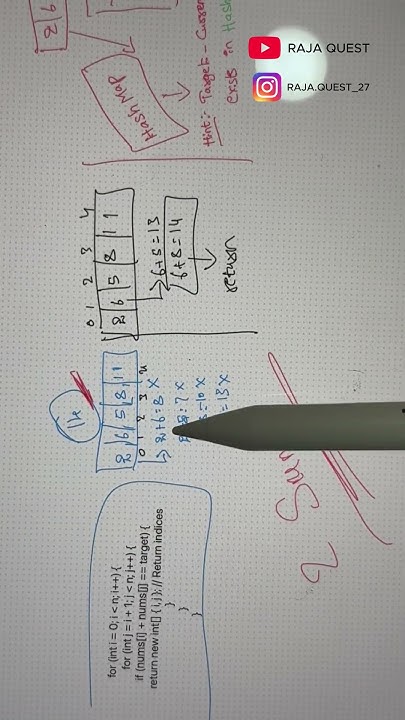 RAJA QUEST
RAJA.QUEST_27
2 6
Hash Map
Hint:- Target - Curren
exists in Hash
0 1 2 3 4
2 6 5 8 11
6+5=13
6+8=14
return
14
2 6 5 8 11
0 1 2 3 4
→ 2+6=8 X
=7 X
=10 X
=13 X
2 Sum
for (int i = 0; i < n; i++) {
for (int j = i + 1; j < n; j++) {
if (nums[i] + nums[j] == target) {
return new int[] { i, j }; // Return indices
}
}
}